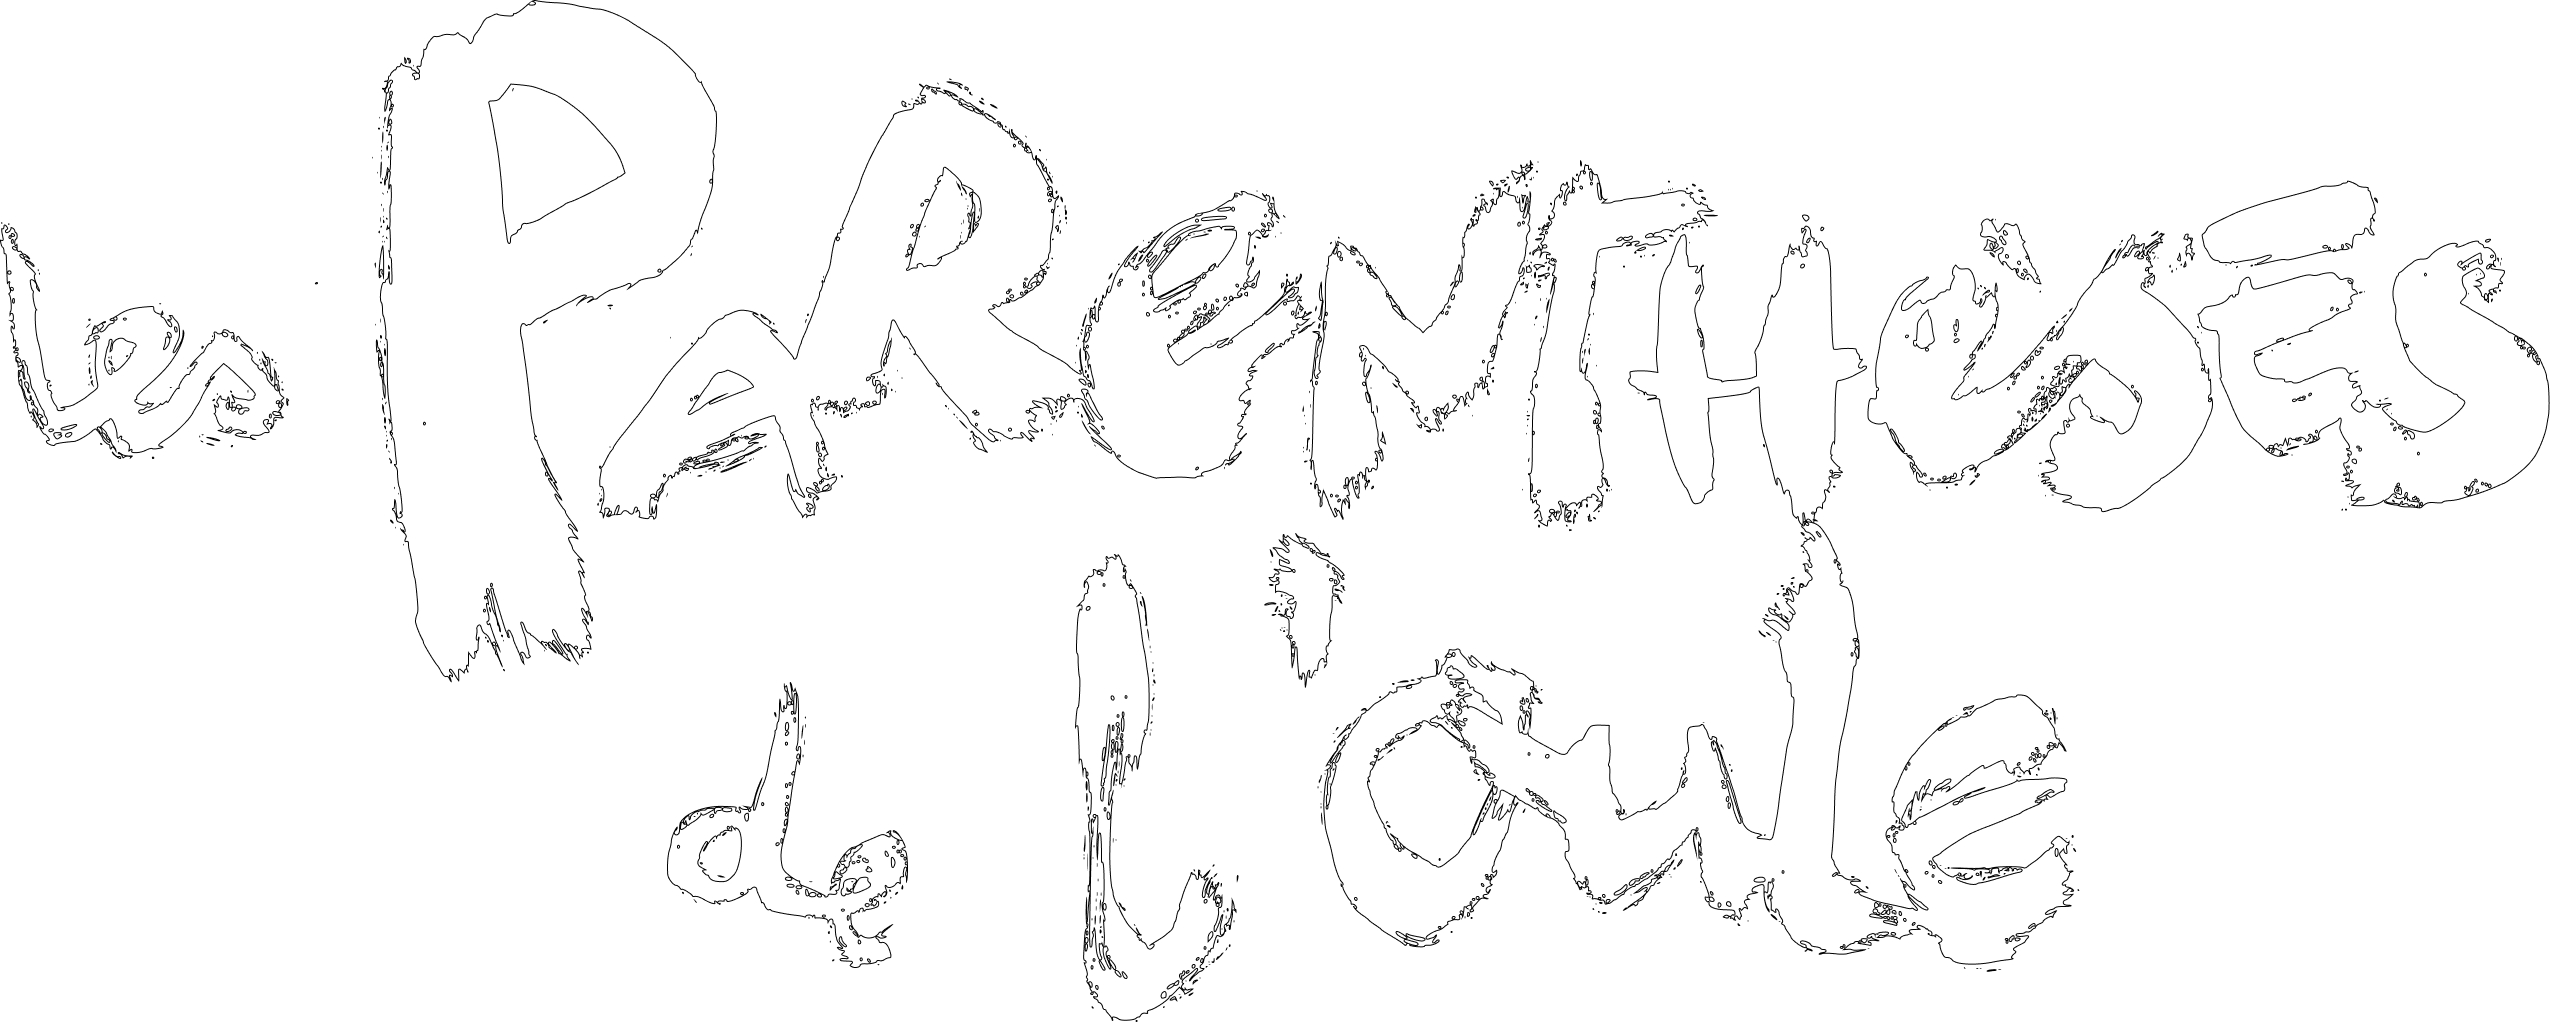 les PAReNTHèSES
de l'aule